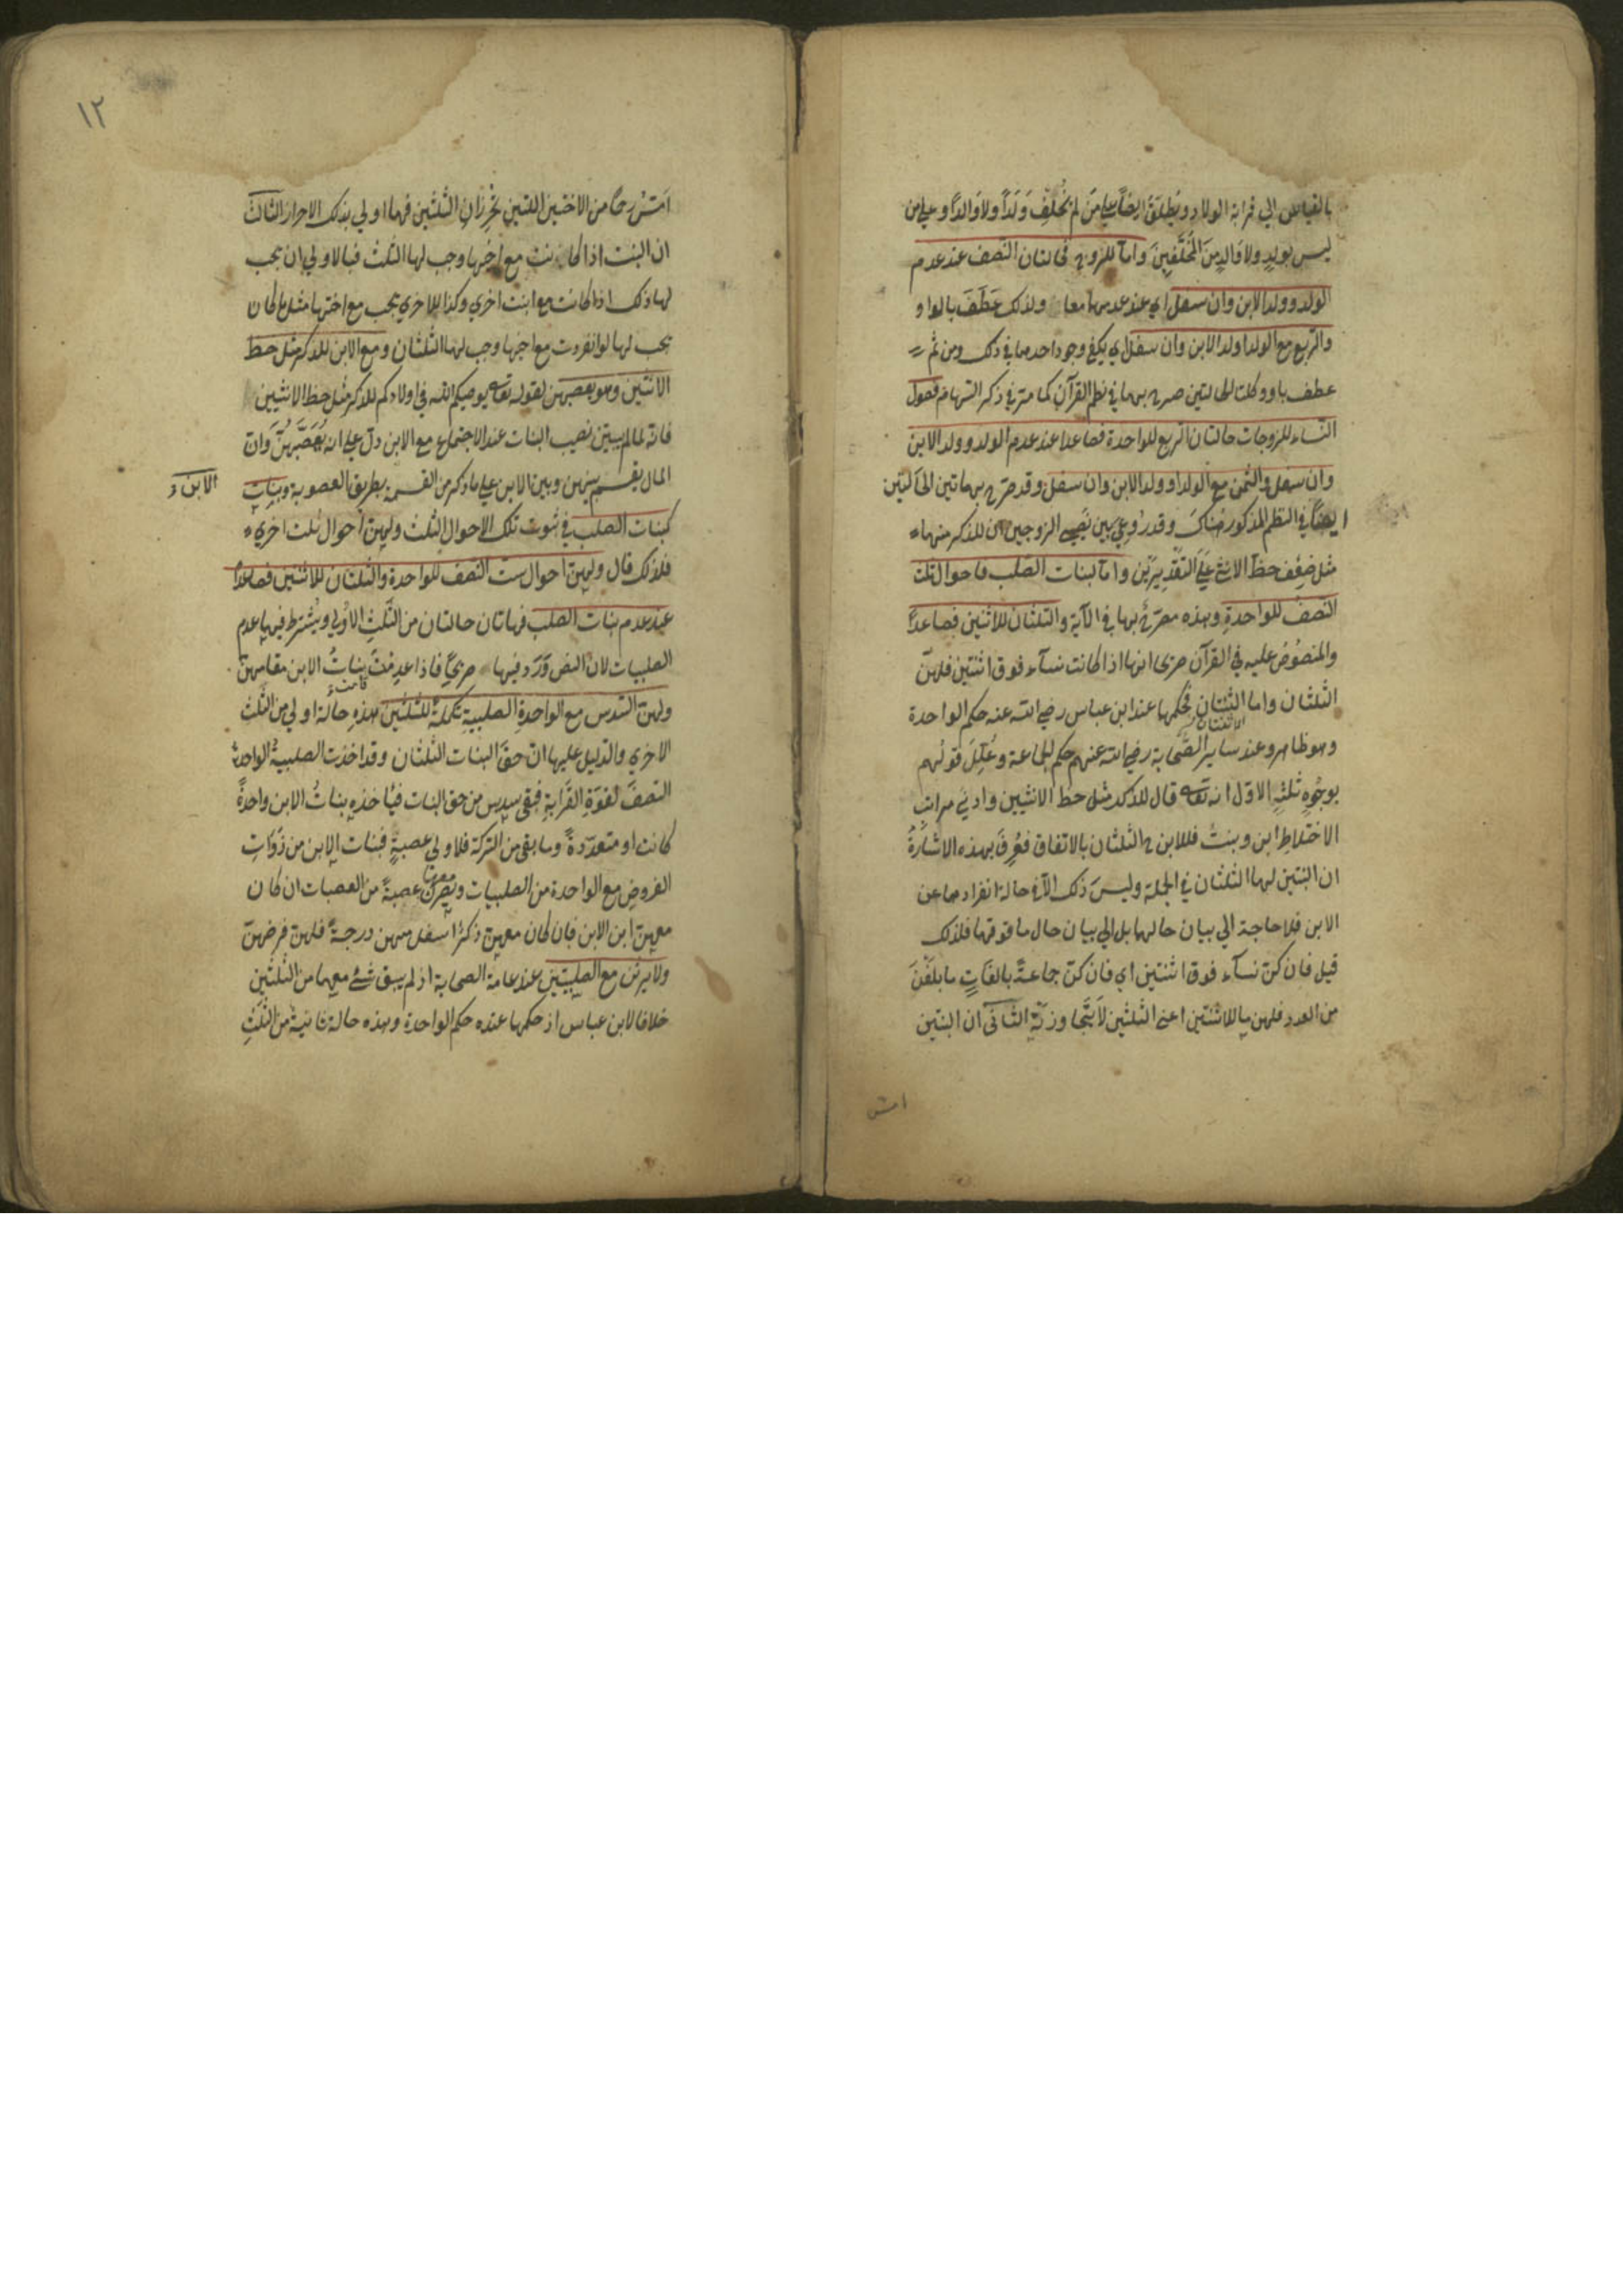 بالقياس الي قرابة الولاد ويُطلَقُ ايضاً علي مَن لم يُخَلِّف وَلَداً ولا وَالداً وعلي من
ليس بولدٍ ولا وَالدٍ مِنَ المُخَلَّفِينَ وامّا للزوج فحالتان النّصف عند عدم
الولد وولد الابن وان سفل اي عند عدمهما معا ولذلك عَطَفَ بالواو
والرّبع مع الولد او ولد الابن وان سفل اي يكفي وجود احدهما في ذلك ومن ثم
عطف باو وكلتا الحالتين صرح بهما في نظم القرآن كما مرّ في ذكر السّهام فصول
النّساء للزوجات حالتان الرّبع للواحدة فصاعدا عند عدم الولد وولد الابن
وان سفل والثمن مع الولد او ولد الابن وان سفل وقد صرّح بهاتين الحالتين
ايضاً في النظم المذكور هناك وقد رُوعِي بين نَصِيبي الزوجين ان للذكر منهما
مثل ضِعْف حظ الانثي علي التقديرَيْن وامّا لبنات الصّلب فاحوال ثلث
النّصفُ للواحدةِ وهذه مصرّحٌ بها في الآية والثلثان للاثنتين فصاعداً
والمنصُوصُ عليه في القرآن صريحا انها اذا كانت نسآء فوق اثنتين فلهنّ
الثلثان واما الثنتان فحكمهما عند ابن عباس رضي الله عنه حكم الواحدة
الاثنتان
وهو ظاهر وعند سَاير الصّحابة رضي الله عنهم حكم الجماعة وعُلِّلَ قولُهم
بوجُوهٍ ثلثةٍ الاوّل انه تعالى قال للذكر مثل حظ الانثيين وادني مراتب
الاختلاطِ ابن وبنتٌ فللابن ح الثلثان بالاتفاق فعُرِفَ بهذه الاشارةُ
ان البنتين لهما الثلثان في الجملة وليسَ ذلك الّا في حالة انفرادهما عن
الابن فلا حاجة الي بيان حالهما بل الي بيان حال ما فوقهما فلذلك
قيل فان كنّ نسآء فوق اثنتين اي فان كنّ جماعةً بالغَاتٍ ما بلَغْنَ
من العدد فلهن ما للاثنتين اعني الثلثين لا يتجاوزنّه الثّاني ان البنتين
امس
١٢
امَسُّ رحما من الاختين اللتين تحرزان الثلثين فهما اولي بذلك الاحراز الثالث
ان البنت اذا كانت مع اخيها وجب لها الثلث فبالاولي ان يجب
لها ذلك اذا كانت مع ابنت اخري وكذا للاخري يجب مع اختها مثل ما كان
يجب لها لو انفردت مع اخيها وجب لهما الثلثان ومع الابن للذكر مثل حظ
الانثيين وهو يعصبهن لقوله تعالى يوصيكم الله في اولادكم للذكر مثل حظ الانثيين
فانّه لما لم يبيّن نصيب البنات عند الاجتماع مع الابن دلّ علي انه يُعَصِّبُهُنّ وَان
المال يقسم بينهن وبين الابن علي ما ذكر من القسمة بطريق العصوبة وبنات
الابن
كبنات الصلب في ثبوت تلك الاحوال الثلث ولهنّ احوال ثلث اخري
فلذلك قال ولهنّ احوال ست النصف للواحدة والثلثان للاثنتين فصاعداً
عند عدم بنات الصلب فهاتان حالتان من الثّلثِ الاوُلي ويُشترط فيهما عدم
الصلبيات لان النص وَرَد فيها صريحاً فاذا عدِمَتْ قامت بناتُ الابن مقامهنّ
ولهنّ السّدس مع الواحدةِ الصلبيةِ تكملةً للثلثين هذهِ حالة اولي من الثلث
الاخري والدّليل عليها انّ حقّ البنات الثلثان وقد اخذت الصلبيةُ الواحدةُ
النصفَ لقوّةِ القَرابةِ فبقي سدس من حق البنات فيأخذه بناتُ الابن واحدةً
كانت او متعدّدةً وما بقي من التركة فلاولي عصبةٍ فبنات الابن من ذَوَاتِ
الفروضِ مع الواحدة من الصلبيات ويصرن معها عصبةً من العصبات ان كان
معهنّ ابن الابن فان كان معهنّ ذكرٌ اسفل منهن درجةً فلهنّ فرضهنّ
ولا يرثن مع الصلبيّتين عند عامة الصحابة اذ لم يبق شئٌ معهما من الثلثين
خلافا لابن عباس اذ حكمهما عنده حكم الواحدة وهذه حالة ثانية من الثلثِ